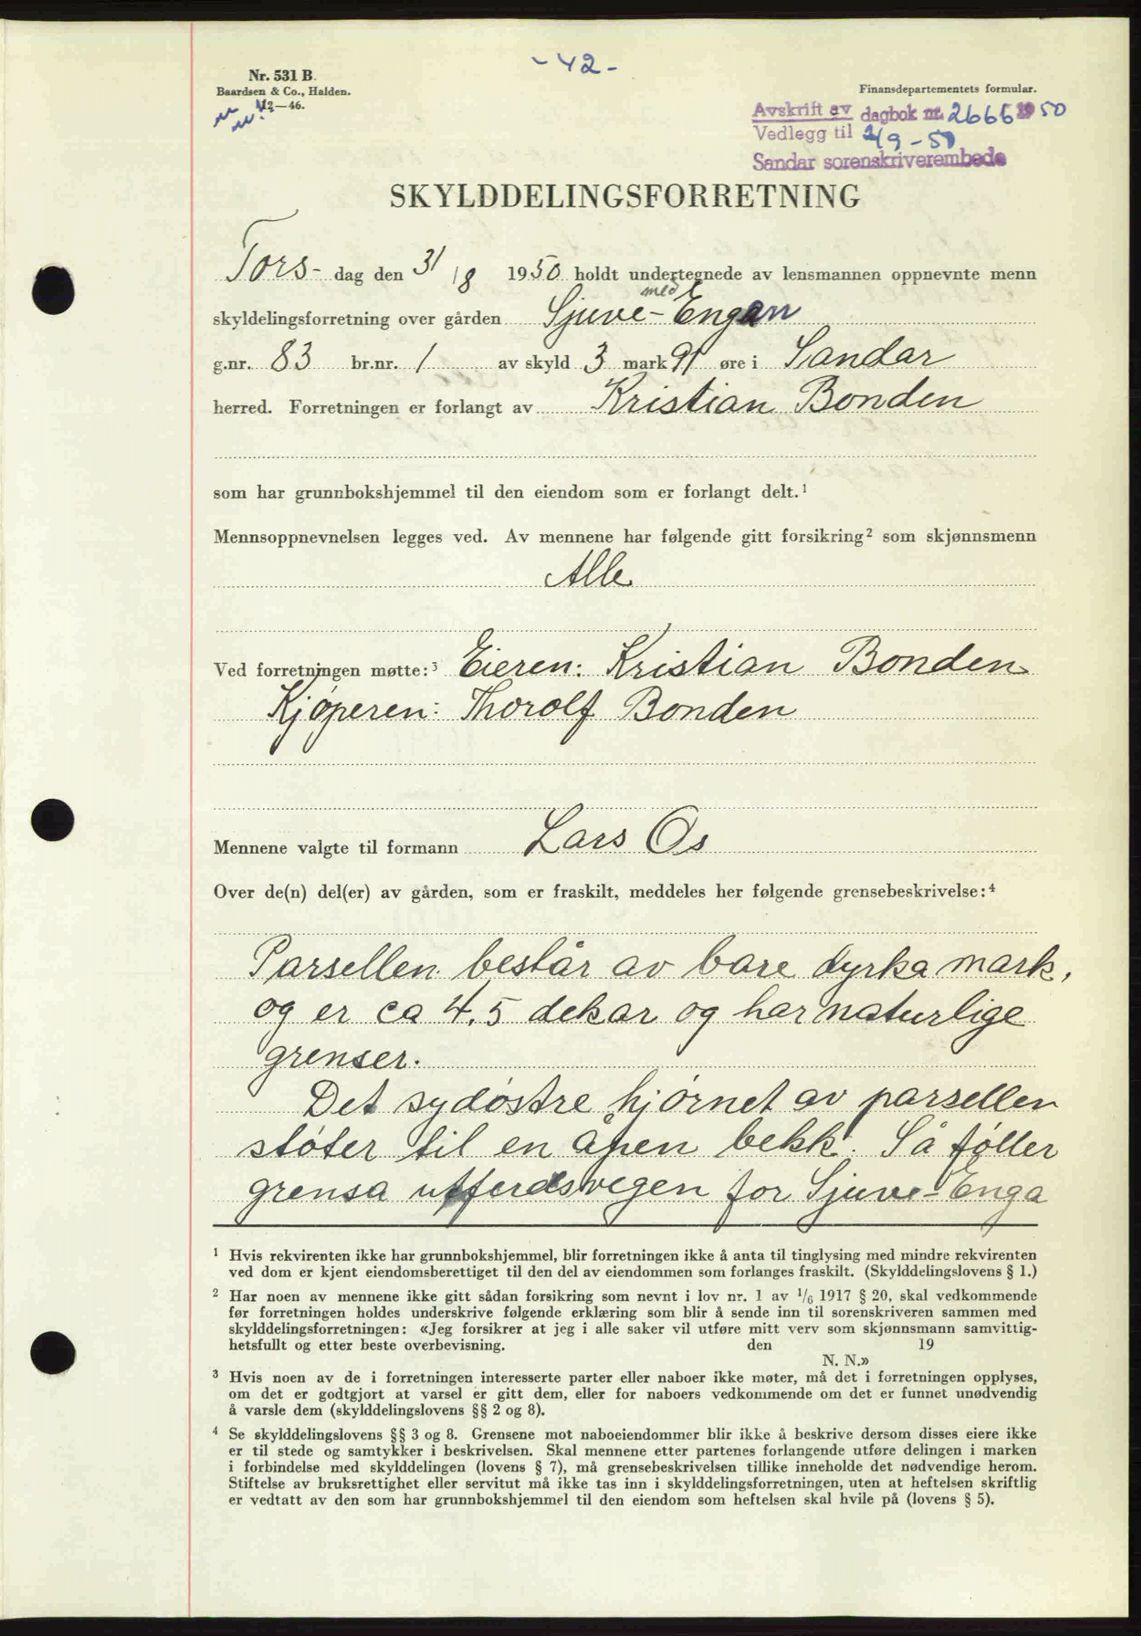 - 42 -
Nr. 531 B.
Baardsen & Co., Halden.
12—46.
Finansdepartementets formular.
Avskrift av dagbok nr. 2666 1950
Vedlegg til 2/9-50
Sandar sorenskriverembede
SKYLDDELINGSFORRETNING
Tors- dag den 31/8 1950 holdt undertegnede av lensmannen oppnevnte menn
med
skyldelingsforretning over gården Sjuve-Engan
g.nr. 83 br.nr. 1 av skyld 3 mark 91 øre i Sandar
herred. Forretningen er forlangt av Kristian Bonden
som har grunnbokshjemmel til den eiendom som er forlangt delt.¹
Mennsoppnevnelsen legges ved. Av mennene har følgende gitt forsikring² som skjønnsmenn
Alle
Ved forretningen møtte:³ Eieren: Kristian Bonden
Kjøperen: Thorolf Bonden
Mennene valgte til formann Lars Os
Over de(n) del(er) av gården, som er fraskilt, meddeles her følgende grensebeskrivelse:⁴
Parsellen består av bare dyrka mark,
og er ca 4,5 dekar og har naturlige
grenser.
Det sydøstre hjørnet av parsellen
støter til en åpen bekk. Så føller
grensa utferdsvegen for Sjuve-Enga
¹ Hvis rekvirenten ikke har grunnbokshjemmel, blir forretningen ikke å anta til tinglysing med mindre rekvirenten
ved dom er kjent eiendomsberettiget til den del av eiendommen som forlanges fraskilt. (Skylddelingslovens § 1.)
² Har noen av mennene ikke gitt sådan forsikring som nevnt i lov nr. 1 av 1/6 1917 § 20, skal vedkommende
før forretningen holdes underskrive følgende erklæring som blir å sende inn til sorenskriveren sammen med
skylddelingsforretningen: «Jeg forsikrer at jeg i alle saker vil utføre mitt verv som skjønnsmann samvittig-
hetsfullt og etter beste overbevisning. den 19
N. N.»
³ Hvis noen av de i forretningen interesserte parter eller naboer ikke møter, må det i forretningen opplyses,
om det er godtgjort at varsel er gitt dem, eller for naboers vedkommende om det er funnet unødvendig
å varsle dem (skylddelingslovens §§ 2 og 8).
⁴ Se skylddelingslovens §§ 3 og 8. Grensene mot naboeiendommer blir ikke å beskrive dersom disses eiere ikke
er til stede og samtykker i beskrivelsen. Skal mennene etter partenes forlangende utføre delingen i marken
i forbindelse med skylddelingen (lovens § 7), må grensebeskrivelsen tillike inneholde det nødvendige herom.
Stiftelse av bruksrettighet eller servitut må ikke tas inn i skylddelingsforretningen, uten at heftelsen skriftlig
er vedtatt av den som har grunnbokshjemmel til den eiendom som heftelsen skal hvile på (lovens § 5).